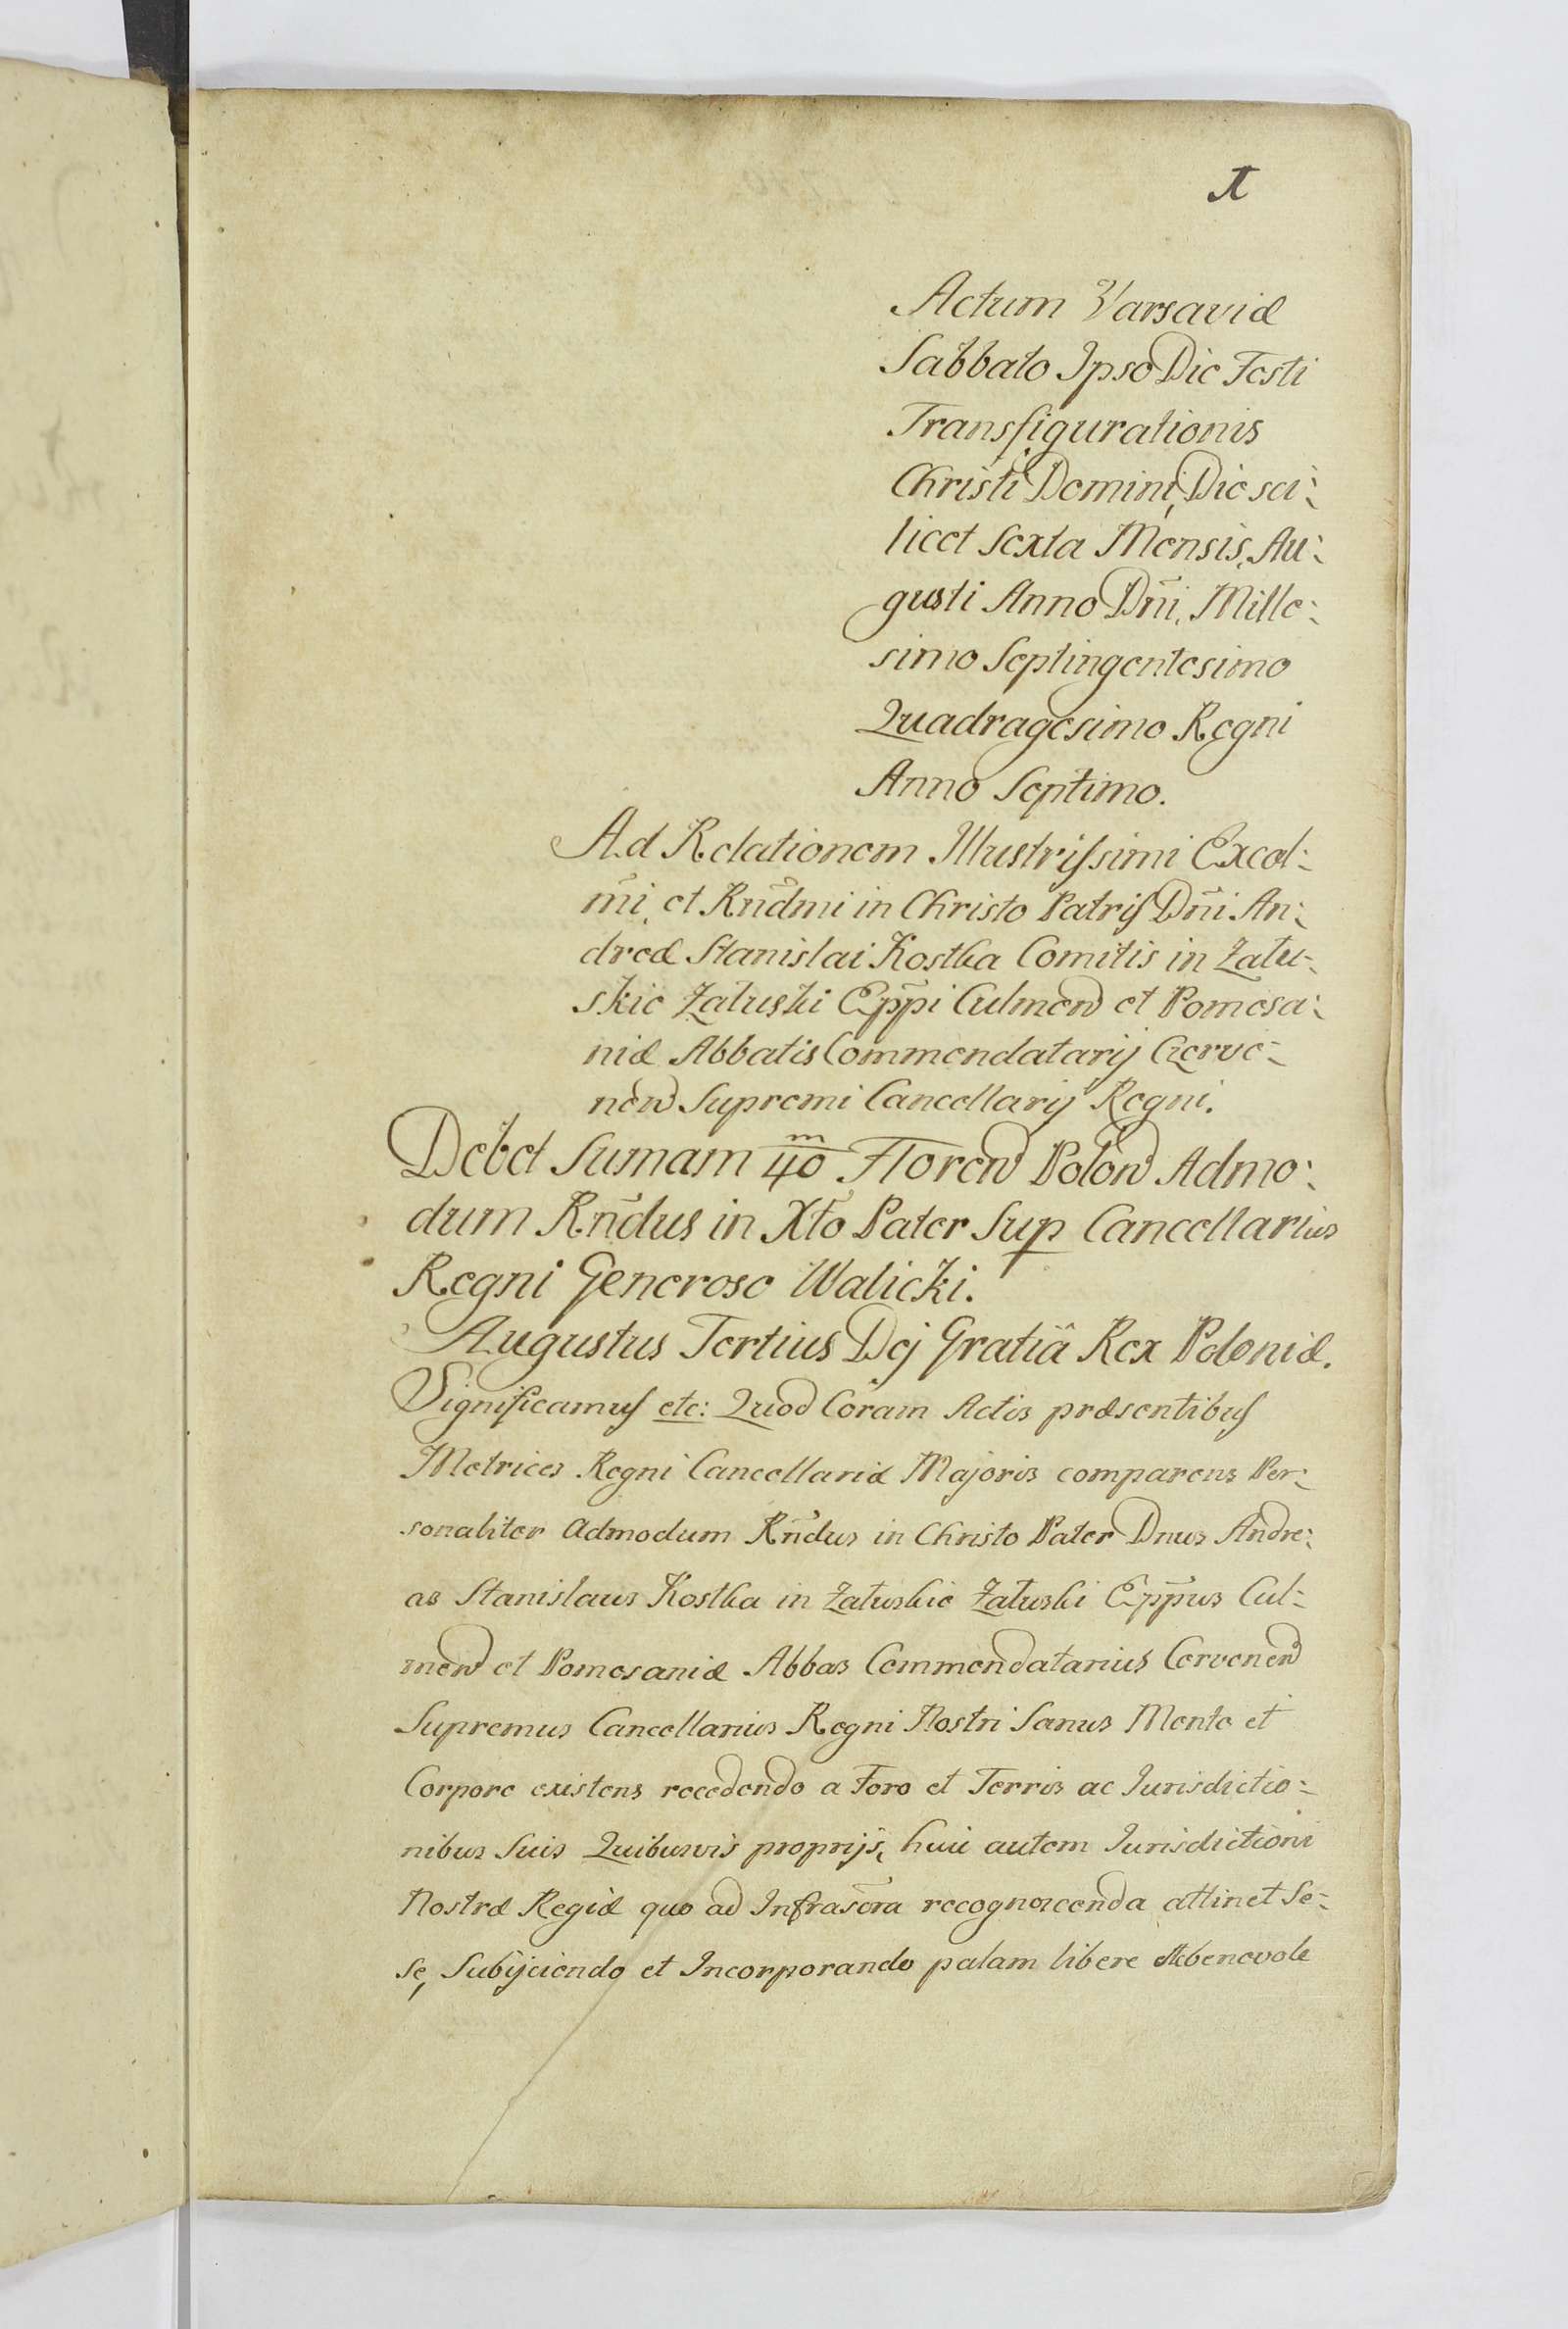 1
Actum Varsaviæ
Sabbato Ipso Die Festi
Transfigurationis
Christi Domini, Die sci:
licet Sexta Mensis, Au:
gusti Anno Dn̄i, Mille:
simo Septingentesimo
Quadragesimo Regni
Anno Septimo.
Ad Relationem Illustriſsimi Excel:
mi, et Rn̄dmi in Christo Patriſ Dn̄i An:
dreæ Stanislai Kostka Comitis in Zału:
skie Załuski Epp̄i Culmen et Pomesa:
niæ Abbatis Commendatarij Czerve:
nen Supremi Cancellarij Regni.
Debet Sumam 40 m Floren Polon Admo:
dum Rn̄dus in Xto Pater Sup Cancellarius
Regni Generoso Walicki.
Augustus Tertius Dej Gratiâ Rex Poloniæ.
Significamuſ etc: Quod Coram Actis præsentibuſ
Metrices Regni Cancellariæ Majoris comparens Per:
sonaliter Admodum Rn̄dus in Christo Pater Dnus Andre:
as Stanislaus Kostka in Załuskie Załuski Epp̄us Cul:
men et Pomesaniæ Abbas Commendatarius Cervenen
Supremus Cancellarius Regni Nostri Sanus Mente et
Corpore existens recedendo a Foro et Terris ac Jurisdictio:
nibus Suis Quibusvis proprijs, huic autem Jurisdictioni
Nostræ Regiæ quo ad Infrascra recognoscenda attinet Se:
se, Subijciendo et Incorporando palam libere Acbenevole